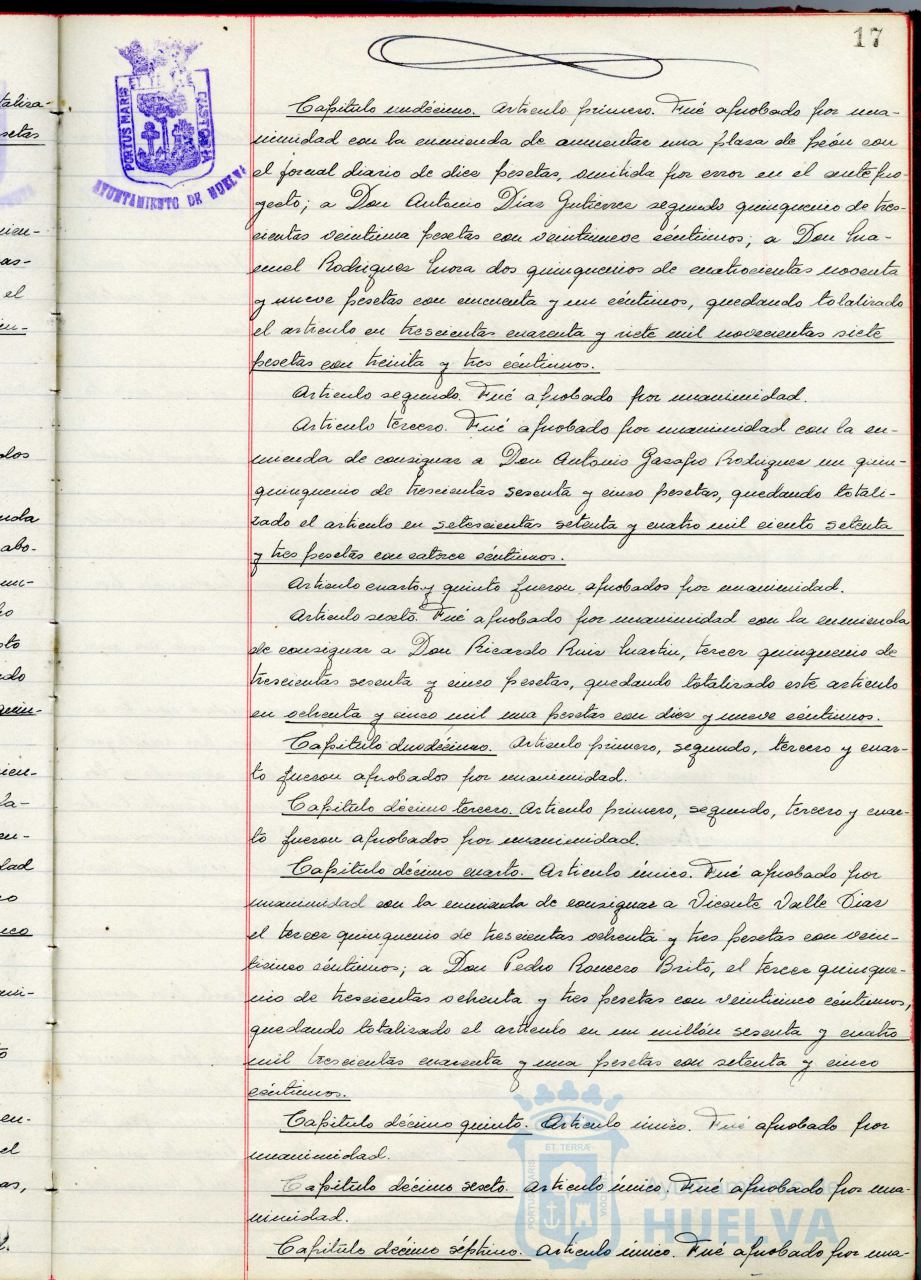 17
PORTUS MARIS ET TERRE CVSTODIA
AYUNTAMIENTO DE HUELVA
Capitulo undécimo. Articulo primero. Fué aprobado por una-
nimidad con la enmienda de aumentar una plaza de peón con
el jornal diario de diez pesetas, omitida por error en el antepro
yecto; a Don Antonio Díaz Gutierrez segundo quinquenio de tres-
cientas veintiuna pesetas con veintinueve céntimos; a Don Ma-
nuel Rodriguez Mora dos quinquenios de cuatrocientas noventa
y nueve pesetas con cincuenta y un céntimos, quedando totalizado
el articulo en trescientas cuarenta y siete mil novecientas siete
pesetas con treinta y tres céntimos.
Articulo segundo. Fué aprobado por unanimidad.
Articulo tercero. Fué aprobado por unanimidad con la en-
mienda de consignar a Don Antonio Rodriguez un quin-
quinquenio de trescientas sesenta y cinco pesetas, quedando totali-
zado el articulo en setescientas setenta y cuatro mil ciento setenta
y tres pesetas con catorce céntimos.
Articulo cuarto y quinto fueron aprobados por unanimidad.
Articulo sexto. Fué aprobado por unanimidad con la enmienda
de consignar a Don Ricardo Ruiz Martin, tercer quinquenio de
trescientas sesenta y cinco pesetas, quedando totalizado este articulo
en ochenta y cinco mil una pesetas con diez y nueve céntimos.
Capitulo duodécimo. Articulo primero, segundo, tercero y cuar-
to fueron aprobados por unanimidad.
Capitulo décimo tercero. Articulo primero, segundo, tercero y cuar-
to fueron aprobados por unanimidad.
Capitulo décimo cuarto. Articulo único. Fué aprobado por
unanimidad con la enmienda de consignar a Vicente Valle Diaz
el tercer quinquenio de trescientas ochenta y tres pesetas con vein-
ticinco céntimos; a Don Pedro Romero Brito, el tercer quinque-
nio de trescientas ochenta y tres pesetas con veinticinco céntimos,
quedando totalizado el articulo en un millón sesenta y cuatro
mil trescientas cuarenta y una pesetas con setenta y cinco
céntimos.
Capitulo décimo quinto. Articulo único. Fué aprobado por
unanimidad.
Capitulo décimo sexto. Articulo único. Fué aprobado por una-
nimidad.
Capitulo décimo séptimo. Articulo único. Fué aprobado por una-
Ayuntamiento de
HUELVA